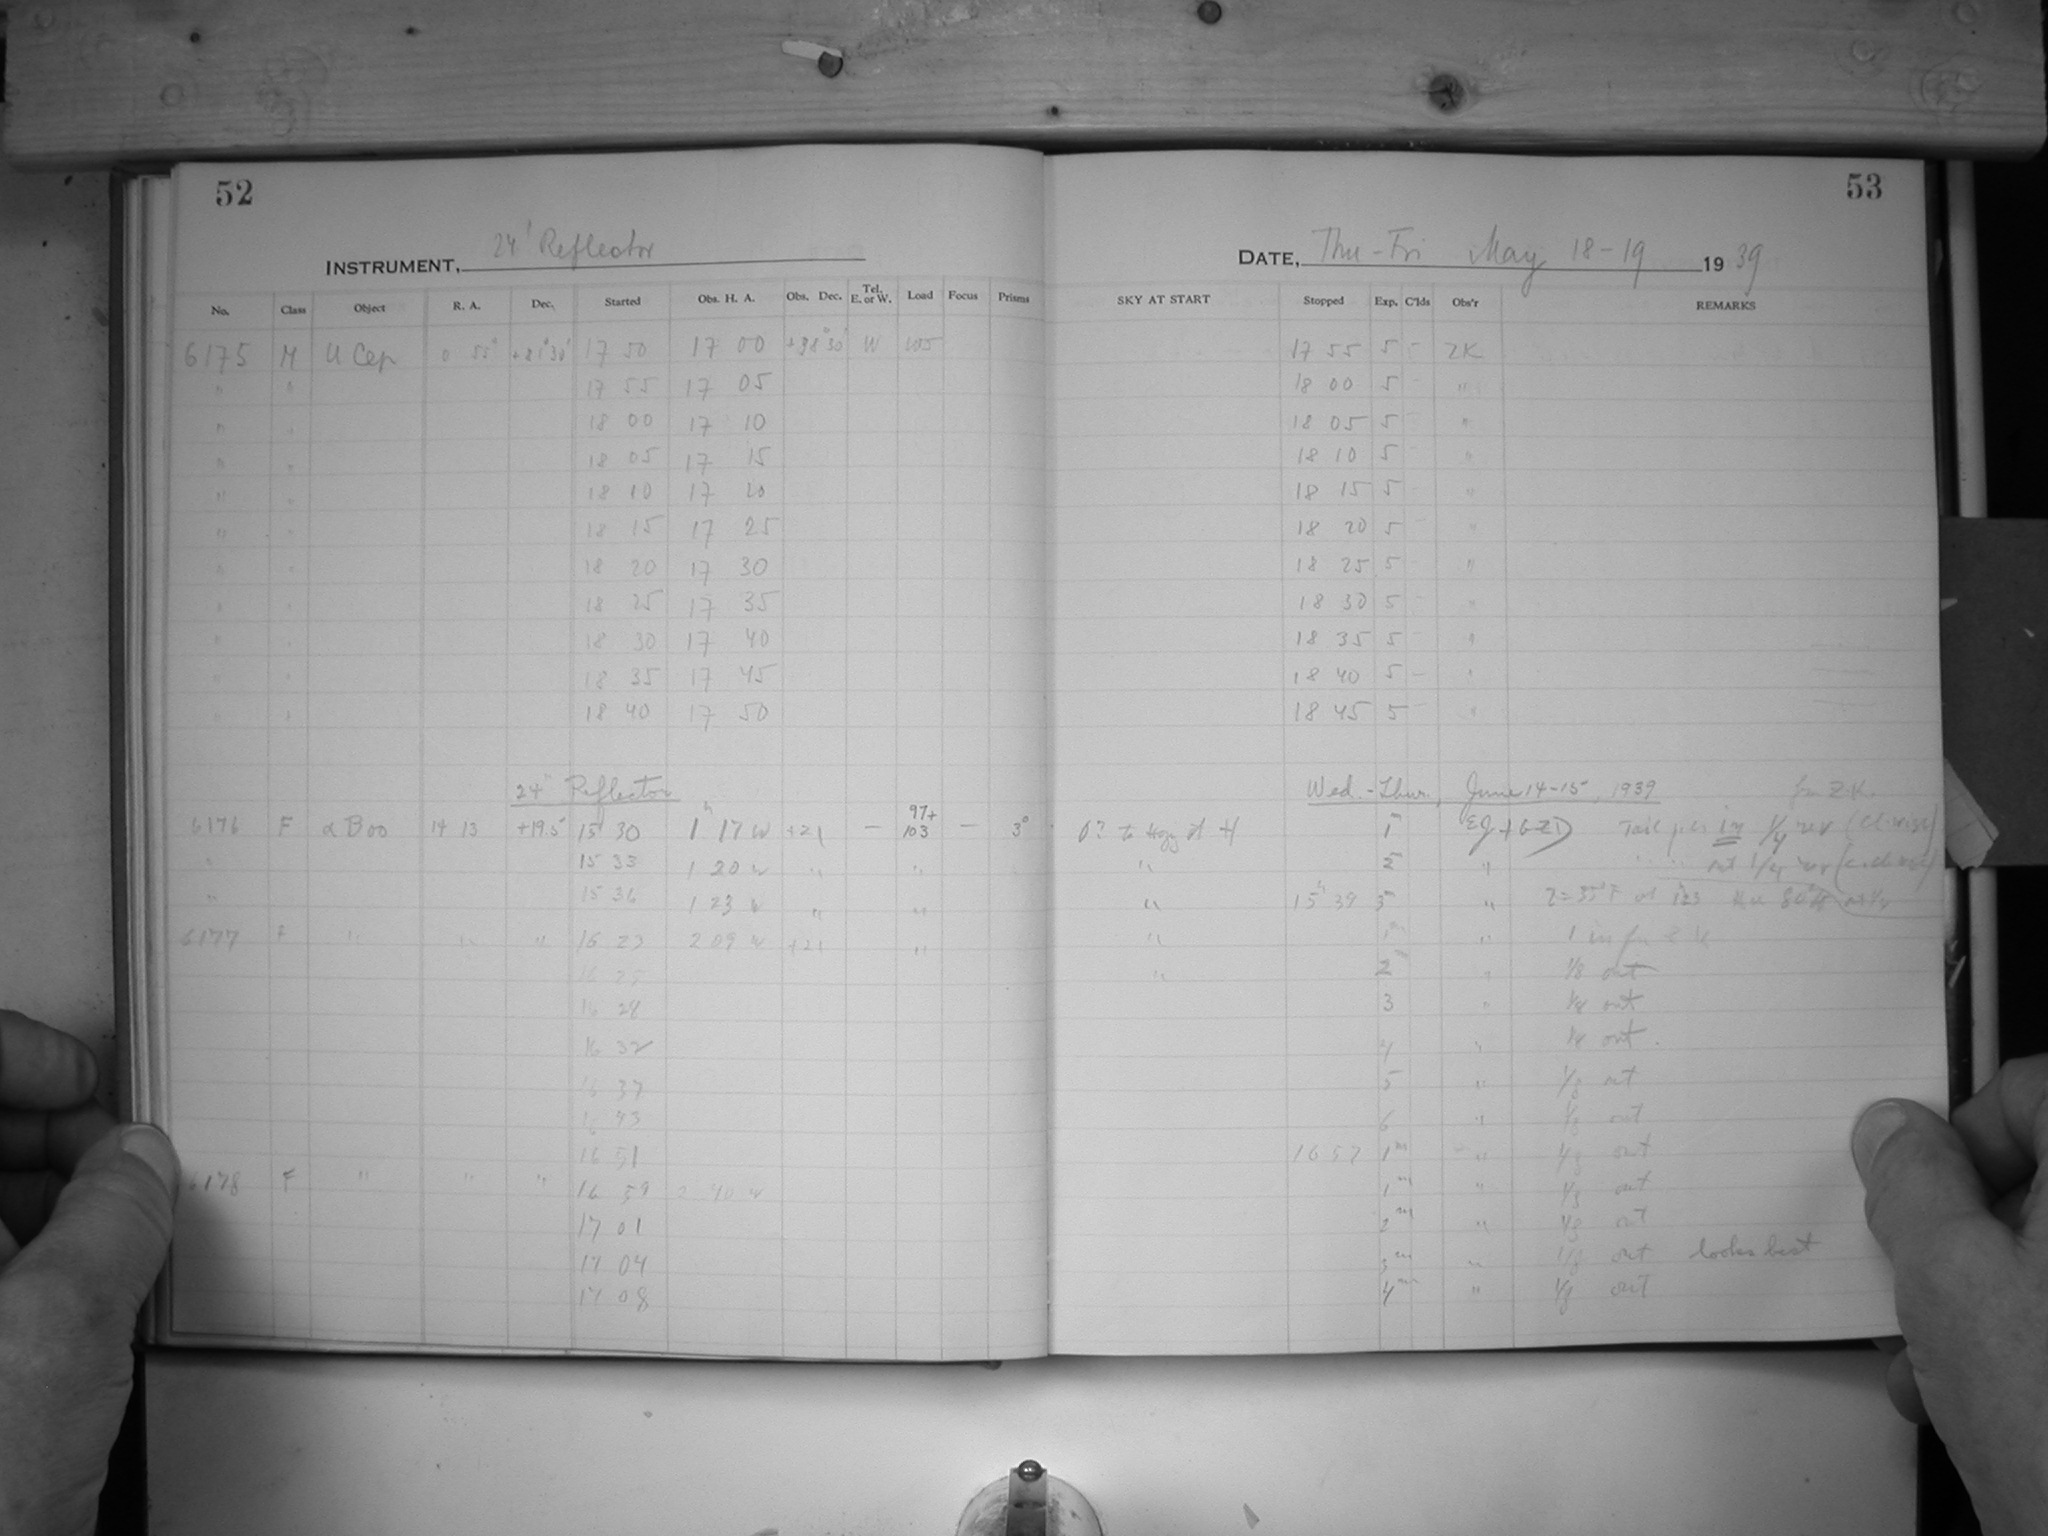 52
53
INSTRUMENT, 24" Reflector
DATE, Thu-Fri May 18-19 1939
No. Class Object R. A. Dec. Started Obs. H. A. Obs. Dec. Tel. E. or W. Load Focus Prisms SKY AT START Stopped Exp. C'lds Obs'r REMARKS
6175 M U Cep 0 55 +81°30' 17 50 17 00 +98°30' W 105 17 55 5 - ZK
" " 17 55 17 05 18 00 5 - "
" " 18 00 17 10 18 05 5 - "
" " 18 05 17 15 18 10 5 - "
" " 18 10 17 20 18 15 5 - "
" " 18 15 17 25 18 20 5 - "
" " 18 20 17 30 18 25 5 - "
" " 18 25 17 35 18 30 5 - "
" " 18 30 17 40 18 35 5 - "
" " 18 35 17 45 18 40 5 - "
" " 18 40 17 50 18 45 5 "
24" Reflector Wed.-Thur., June 14-15, 1939 for Z.K.
6176 F α Boo 14 13 +19.5° 15 30 1h 17 W +21 — 97+ 103 — 3° to at H 1 in 1/4 rev
" 15 33 1 20 W " " " 2 " out 1/4 rev
" 15 36 1 23 W " " " 15h 39 3 " at
6177 F " " " 16 23 2 09 W +21 " " 1m " 1 in
16 25 " 2m " 1/8 out
16 28 3 " 1/8 out
16 32 4 " 1/8 out.
16 37 5 " 1/8 out
16 43 6 " 1/8 out
16 51 16 57 1m " 1/8 out
6178 F " " " 16 59 2 40 W 1m " 1/8 out
17 01 2m " 1/8 out
17 04 3m " 1/8 out looks best
17 08 4m " 1/8 out